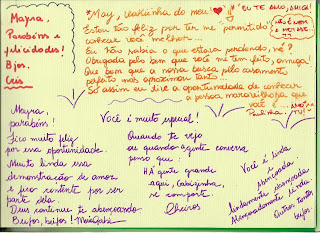 Mayra,
Parabéns e
felicidades!
Bjos.
Cris
*May, leoazinha do meu
EU TE AMO, AMIGA!
Estou tão feliz por ter me "permitido"
conhecer você melhor...
Eu não sabia o que estava perdendo, né?
Obrigada pelo bem que você me tem feito, amiga!
Que bom que a nossa busca pelo casamento
perfeito nos aproximou tanto
Só assim eu tive a oportunidade de conhecer
a pessoa maravilhosa que
você é
Paulinha
Mayra,
parabéns!
Fico muito feliz
por essa oportunidade.
Muito linda essa
demonstração de amor
e fico contente por ser
parte dela.
Deus continue te abençoando
Beijos, beijos!
Você é muito especial!
Quando te vejo
ou quando agente conversa
penso que:
HÁ gente grande
aqui, Gabizinha,
se comporte.
Cheiros
Você é linda
abençoada,
lindamente abençoada
Abençoadamente linda
Outros tantos
bejos.